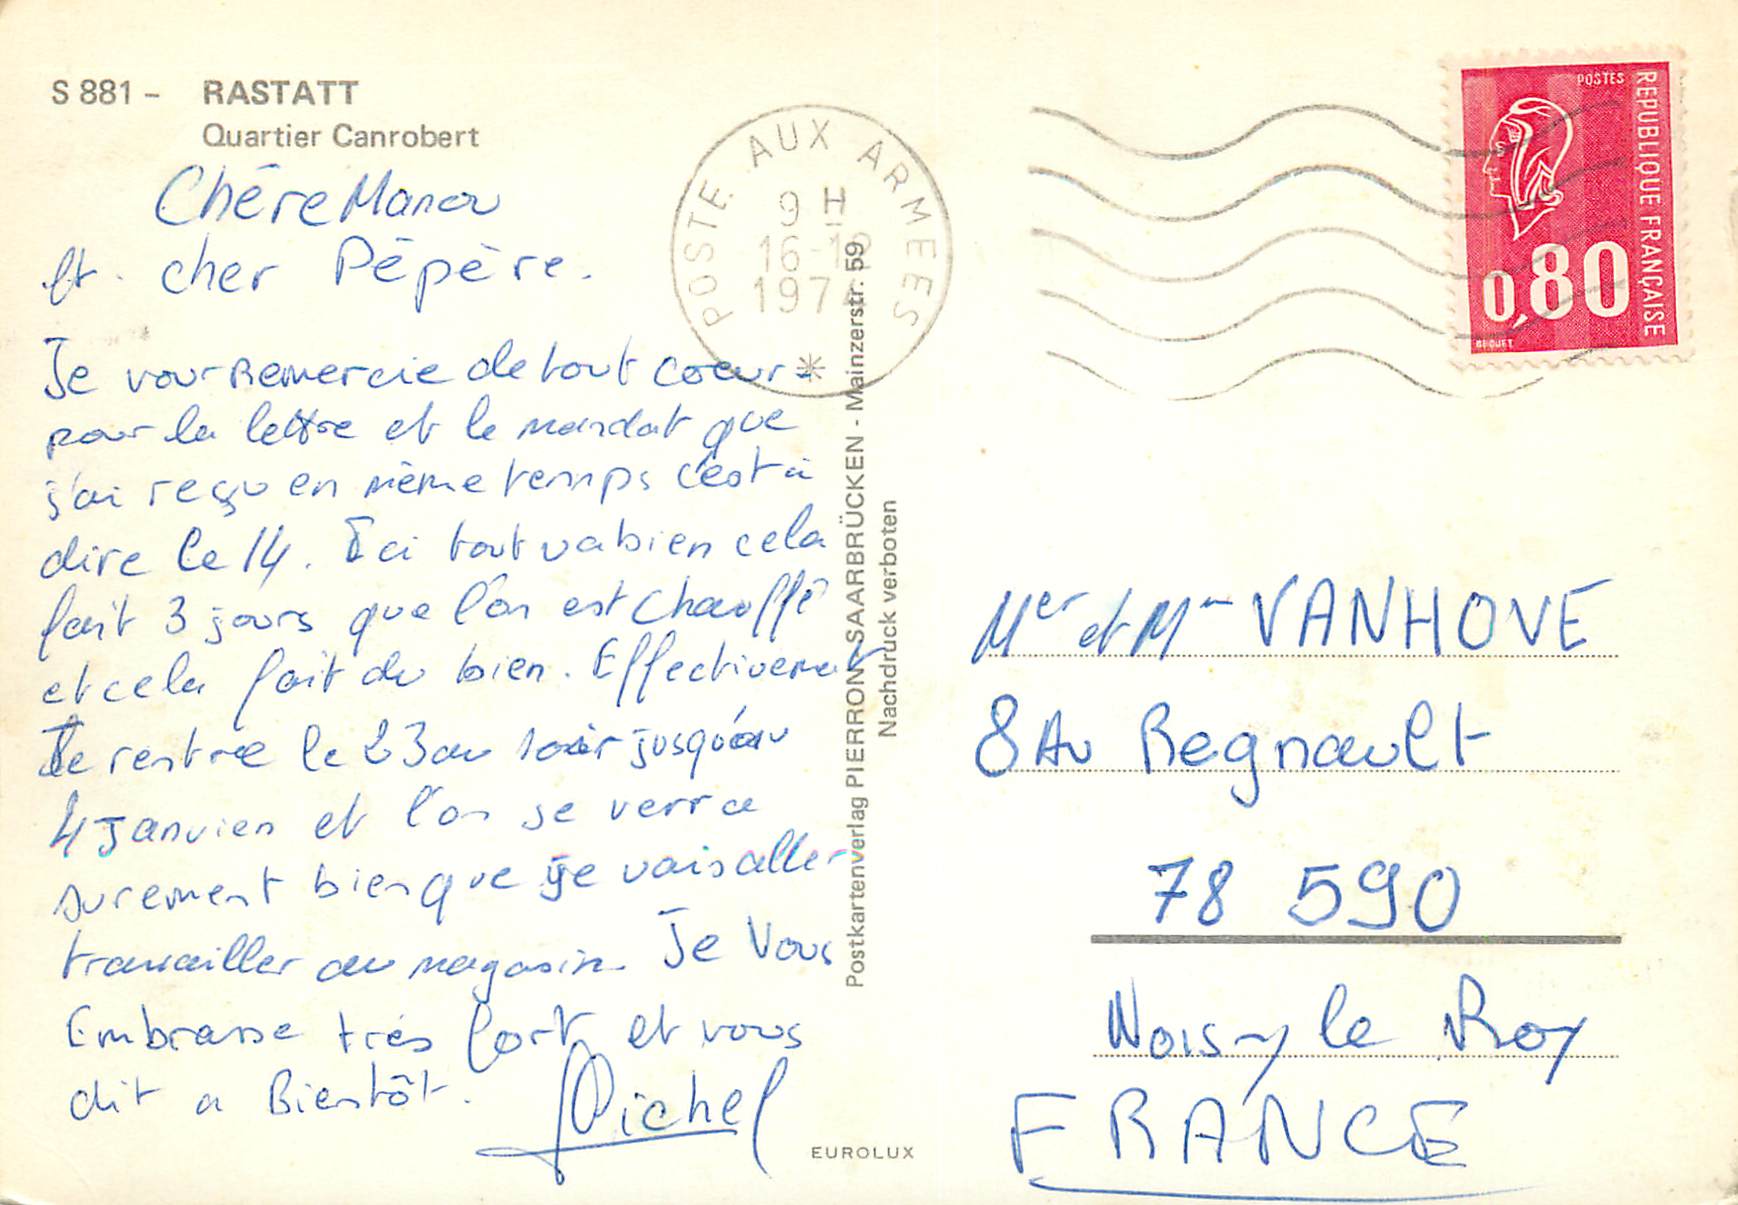 S 881 - RASTATT
Quartier Canrobert
Chére Manou
et cher Pépère.
Je vous Remercie de tout coeur
pour la lettre et le mandat que
j'ai reçu en même temps c'est à
dire le 14. Ici tout va bien cela
fait 3 jours que l'on est chauffé
et cela fait du bien. Effectivement
Je rentre le 23 au soir jusqu'au
4 Janvier et l'on se verra
surement bien que je vais aller
travailler au magasin. Je Vous
Embrasse trés fort et vous
dit a Bientôt.
Michel
POSTE AUX ARMEES
9 H
16-12
1974
POSTES
REPUBLIQUE FRANÇAISE
0,80
BEQUET
Postkartenverlag PIERRON SAARBRÜCKEN - Mainzerstr. 59
Nachdruck verboten
Mer et Mm VANHOVE
8 Av Regnault
78 590
Noisy le Roy
FRANCE
EUROLUX